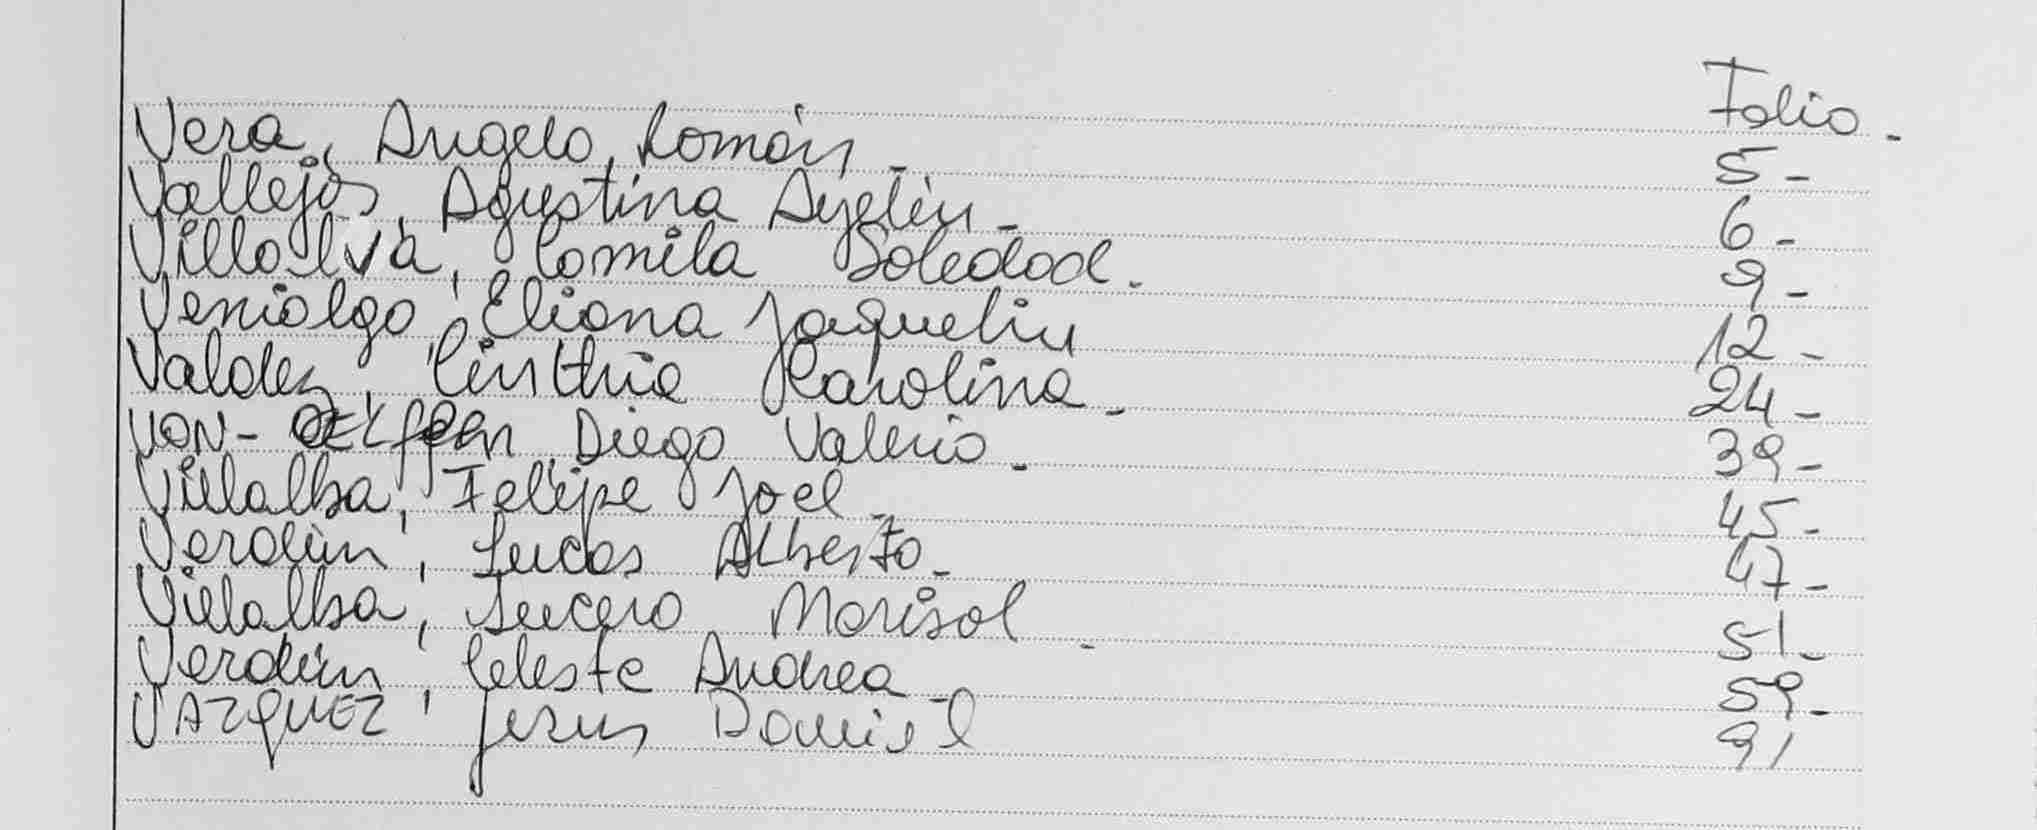 Folio.
Vera, Angelo, Román - 5-
Vallejos, Agustina Ayelén - 6-
Villalva, Camila Soledad. 9-
Venialgo, Eliana Jaquelin 12-
Valdez, Cinthia Karolina - 24-
VON- Diego Valerio - 39-
Villalba, Felipe Joel - 45-
Verdún, Lucas Alberto - 47-
Villalba, Lucero Marisol - 51-
Verdún, Celeste Andrea 59-
VAZQUEZ, Jesus Daniel 91